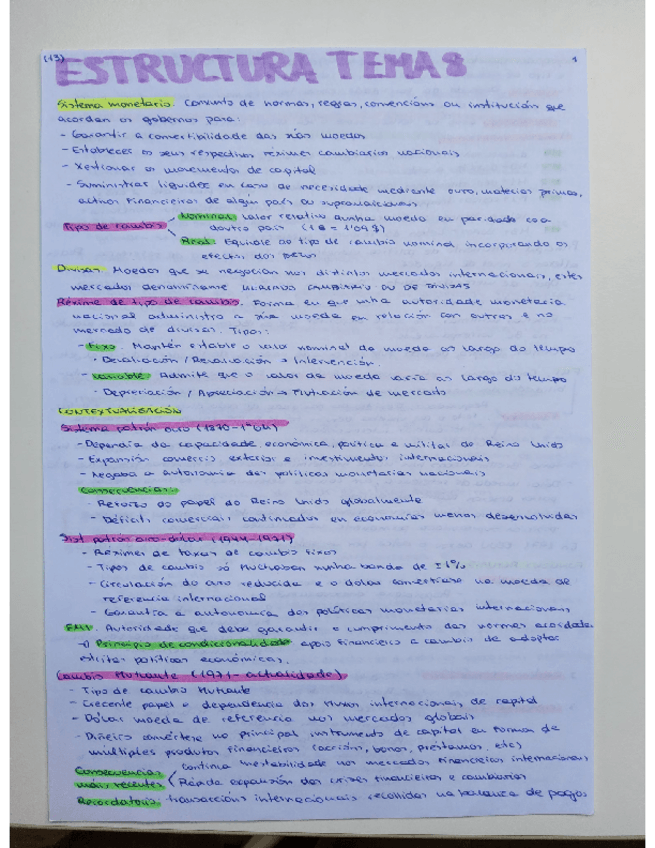 (13)
1
ESTRUCTURA TEMA 8
Sistema monetario. Conxunto de normas, regras, convencións ou institución que
acordan os gobernos para:
- Garantir a convertibilidade das súas moedas
- Establecer os seus respectivos réximes cambiarios nacionais
- Xestionar os movementos de capital
- Suministrar liquidez en caso de necesidade mediante ouro, materias primas,
activos financieiros de algún país ou supranacionais
Tipo de cambio
Nominal: Valor relativo dunha moeda en paridade coa
doutro país (1€ = 1'09$)
Real: Equivale ao tipo de cambio nominal incorporando os
efectos dos prezos
Divisas. Moedas que se negocian nos distintos mercados internacionais, estes
mercados denomínanse MERCADOS CAMBIARIO OU DE DIVISAS
Réxime de tipo de cambio. Forma en que unha autoridade monetaria
nacional administra a súa moeda en relación con outras e no
mercado de divisas. Tipos:
- Fixo. Mantén estable o valor nominal da moeda ao largo do tempo
· Devaluación / Revaluación → Intervención.
- Variable. Admite que o valor da moeda varía ao largo do tempo
· Depreciación / Apreciación → Flutuación de mercado
CONTEXTUALIZACIÓN
Sistema patrón ouro (1870-1ª GM)
- Dependía da capacidade económica, política e militar do Reino Unido
- Expansión comercio exterior e investimentos internacionais
- Negaba a autonomía das políticas monetarias nacionais
Consecuencias:
- Reforzo do papel do Reino Unido globalmente
- Déficits comerciais continuados en economías menos desenvolvidas
Sist patrón ouro-dólar (1944-1971)
- Réximes de taxas de cambio fixos
- Tipos de cambio só fluctuaban nunha banda de ±1%
- Circulación do ouro reducida e o dólar convertírase na moeda de
referencia internacional
- Garantía a autonomía das políticas monetarias internacionais
FMI. Autoridade que debe garantir o cumprimento das normas acordadas.
→ Principio de condicionalidade apoio financieiro a cambio de adoptar
estritas políticas económicas.
Cambio flutuante (1971- actualidade)
- Tipo de cambio flutuante
- Crecente papel e dependencia dos fluxos internacionais de capital
- Dólar moeda de referencia nos mercados globais
- Diñeiro convértese no principal instrumento de capital en forma de
múltiples produtos financieiros (accións, bonos, préstamos, etc)
Consecuencias
máis recentes
Continua inestabilidade nos mercados financieiros internacionais
Rápida expansión das crises financieiras e cambiarias
Recordatorio: transaccións internacionais recollidas na balanza de pagos